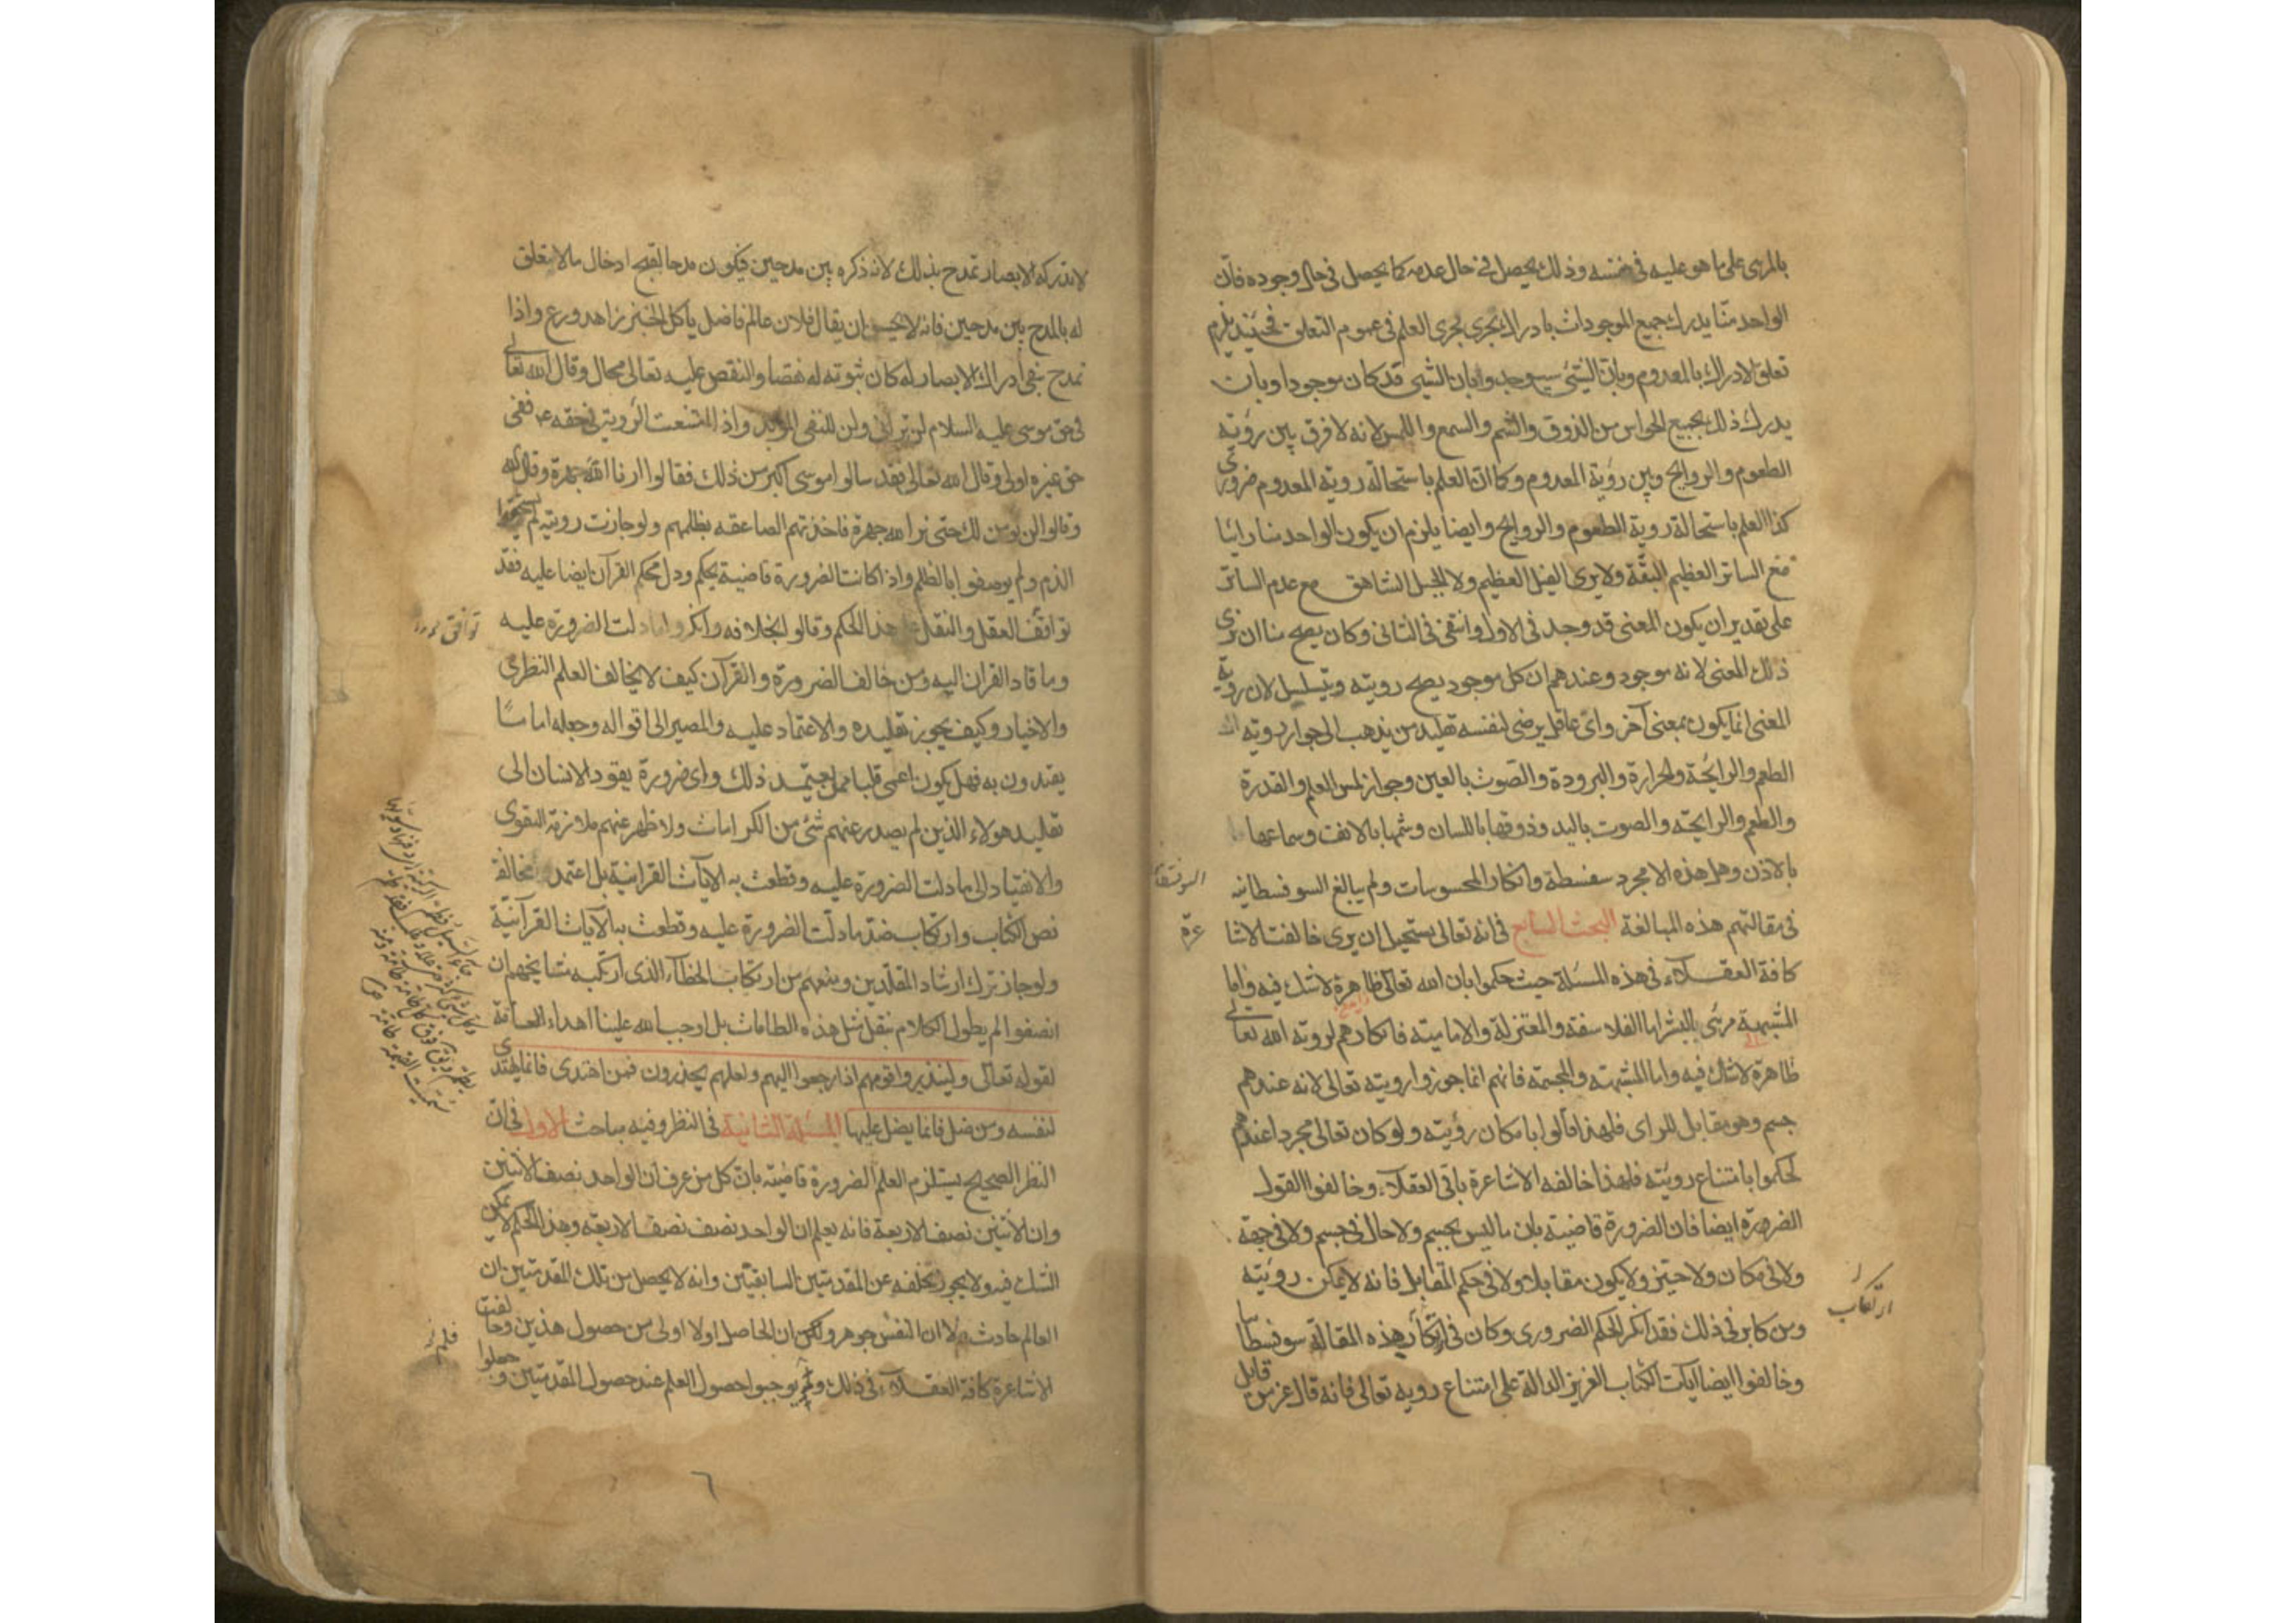 بالمرئی علی ما هو علیه فی نفسه وذلك یحصل فی حال عدمه كما یحصل فی حال وجوده فان
الواحد منا یدرك جمیع الموجودات بادراك یجری مجری العلم فی عموم التعلق فحینئذ یلزم
تعلق الادراك بالمعدوم وبان الشیئ سیوجد وبان الشیئ قد كان موجودا وبان
یدرك ذلك بجمیع الحواس من الذوق والشم والسمع واللمس لانه لا فرق بین رؤیته
الطعوم والروایح وبین رؤیة المعدوم وكما ان العلم باستحالة رویة المعدوم ضروری
كذا العلم باستحالة رویة الطعوم والروایح وایضا یلزم ان یكون الواحد منا رائیا
مع الساتر العظیم البقة ولا یری الفیل العظیم ولا الجبل الشاهق مع عدم الساتر
علی تقدیر ان یكون المعنی قد وجد فی الاول وانتفی فی الثانی وكان یصح منا ان نری
ذلك المعنی لانه موجود وعندهم ان كل موجود یصح رویته ویتسلسل لان رویة
المعنی انما یكون بمعنی آخر وای عاقل یرضی لنفسه تقلید من یذهب الی جواز رویته
الطعم والرایحة والحرارة والبرودة والصوت بالعین وجواز لمس العلم والقدرة
والطعم والرایحته والصوت بالید وذوقها باللسان وشمها بالانف وسماعها
بالاذن وهل هذه الا مجرد سفسطة وانكار المحسوسات ولم یبالغ السوفسطانیه
فی مقالتهم هذه المبالغة البحث السابع فی انه تعالی یستحیل ان یری خالفت الاشا
عرة
كافة العقلاء فی هذه المسئلة حیث حكموا بان الله تعالی ظاهرة لاشك فیه واما
المشبهة مرئی بالبشر اما الفلاسفة والمعتزلة والامامیته فانكارهم لرویة الله تعالی
ظاهرة لاشك فیه واما المشبهته والمجسمة فانهم انما جوزوا رویته تعالی لانه عندهم
جسم وهو مقابل للرای فلهذا قالوا بامكان رؤیته ولو كان تعالی مجردا عندهم
لحكموا بامتناع رویته فلهذا خالفه الاشاعرة باقی العقلاء وخالفوا القول
الضرورة ایضا فان الضرورة قاضیته بان ما لیس بجسم ولا حال فی جسم ولا فی جهة
ولا فی مكان ولا حیز ولا یكون مقابلا ولا فی حكم المقابل فانه لا یمكن رویته
ارتكاب
ومن كابر فی ذلك فقد انكر الحكم الضروری وكان فی ارتكاب هذه المقالة سوفسطا
وخالفوا ایضا ایات الكتاب العزیز الدالة علی امتناع رویه تعالی فانه قال عز من قائل
لا تدركه الابصار تمدح بذلك لانه ذكره بین مدحین فیكون مدحا لقبح ادخال ما لا یتعلق
له بالمدح بین مدحین فانه لا یحسن ان یقال فلان عالم فاضل یأكل الخبز زاهد ورع واذا
تمدح بنفی ادراك الابصار له كان ثبوته له نقصا والنقص علیه تعالی محال وقال الله تعالی
فی حق موسی علیه السلام لن ترانی ولن للنفی المؤبد واذا امتنعت الرویة فی حقه ففی
حق غیره اولی وقال الله تعالی فقد سالوا موسی اكبر من ذلك فقالوا ارنا الله جهرة وقال الله
وقالوا لن نومن لك حتی نرا الله جهرة فاخذتهم الصاعقه بظلمهم ولو جازت رویته لم یستحقوا
الذم ولم یوصفوا بالظلم واذا كانت الضرورة قاضیة بحكم ودل محكم القرآن ایضا علیه فقد
توافق العقل والنقل علی هذا الحكم وقالوا بخلافه وانكروا ما دلت الضرورة علیه
وما قاد القران الیه ومن خالف الضرورة والقرآن كیف لا یخالف العلم النظری
والاخبار وكیف یجوز تقلیده والاعتماد علیه والمصیر الی اقواله وجعله اماما
یقتدون به فهل یكون اعمی قلبا ممن یعتمد ذلك وای ضرورة یقود الانسان الی
تقلید هولاء الذین لم یصدر عنهم شئ من الكرامات ولا ظهر عنهم ملازمة التقوی
والانقیاد الی ما دلت الضرورة علیه وقطعت به الایات القرانیة بل اعتمد مخالفة
نص الكتاب وارتكاب ضد ما دلت الضرورة علیه وقطعت به الآیات القرآنیة
ولو جاز ترك ارشاد المقلدین ومنعهم من ارتكاب الخطاء الذی ارتكبه مشایخهم ان
انصفوا لم یطول الكلام بنقل مثل هذه الطامات بل اوجب الله علینا اهداء العامة
لقوله تعالی ولینذروا قومهم اذا رجعوا الیهم ولعلهم یحذرون فمن اهتدی فانما یهتدی
لنفسه ومن ضل فانما یضل علیها المسئلة الثانیة فی النظر وفیه مباحث الاول فی ان
النظر الصحیح یستلزم العلم الضرورة قاضیته بان كل من عرف ان الواحد نصف الاثنین
وان الاثنین نصف الاربعة فانه یعلم ان الواحد نصف نصف الاربعه وهذا الحكم لا یمكن
الشك فیه ولا یجوز تخلفه عن المقدمتین السابقتین وانه لا یحصل من تلك المقدمتین ان
العالم حادث ولا ان النفس جوهر ولكن ان الحاصل اولا اولی من حصول هذین وخالفت
الاشاعرة كافة العقلاء فی ذلك ولم یوجبوا حصول العلم عند حصول المقدمتین وجعلوا
٦